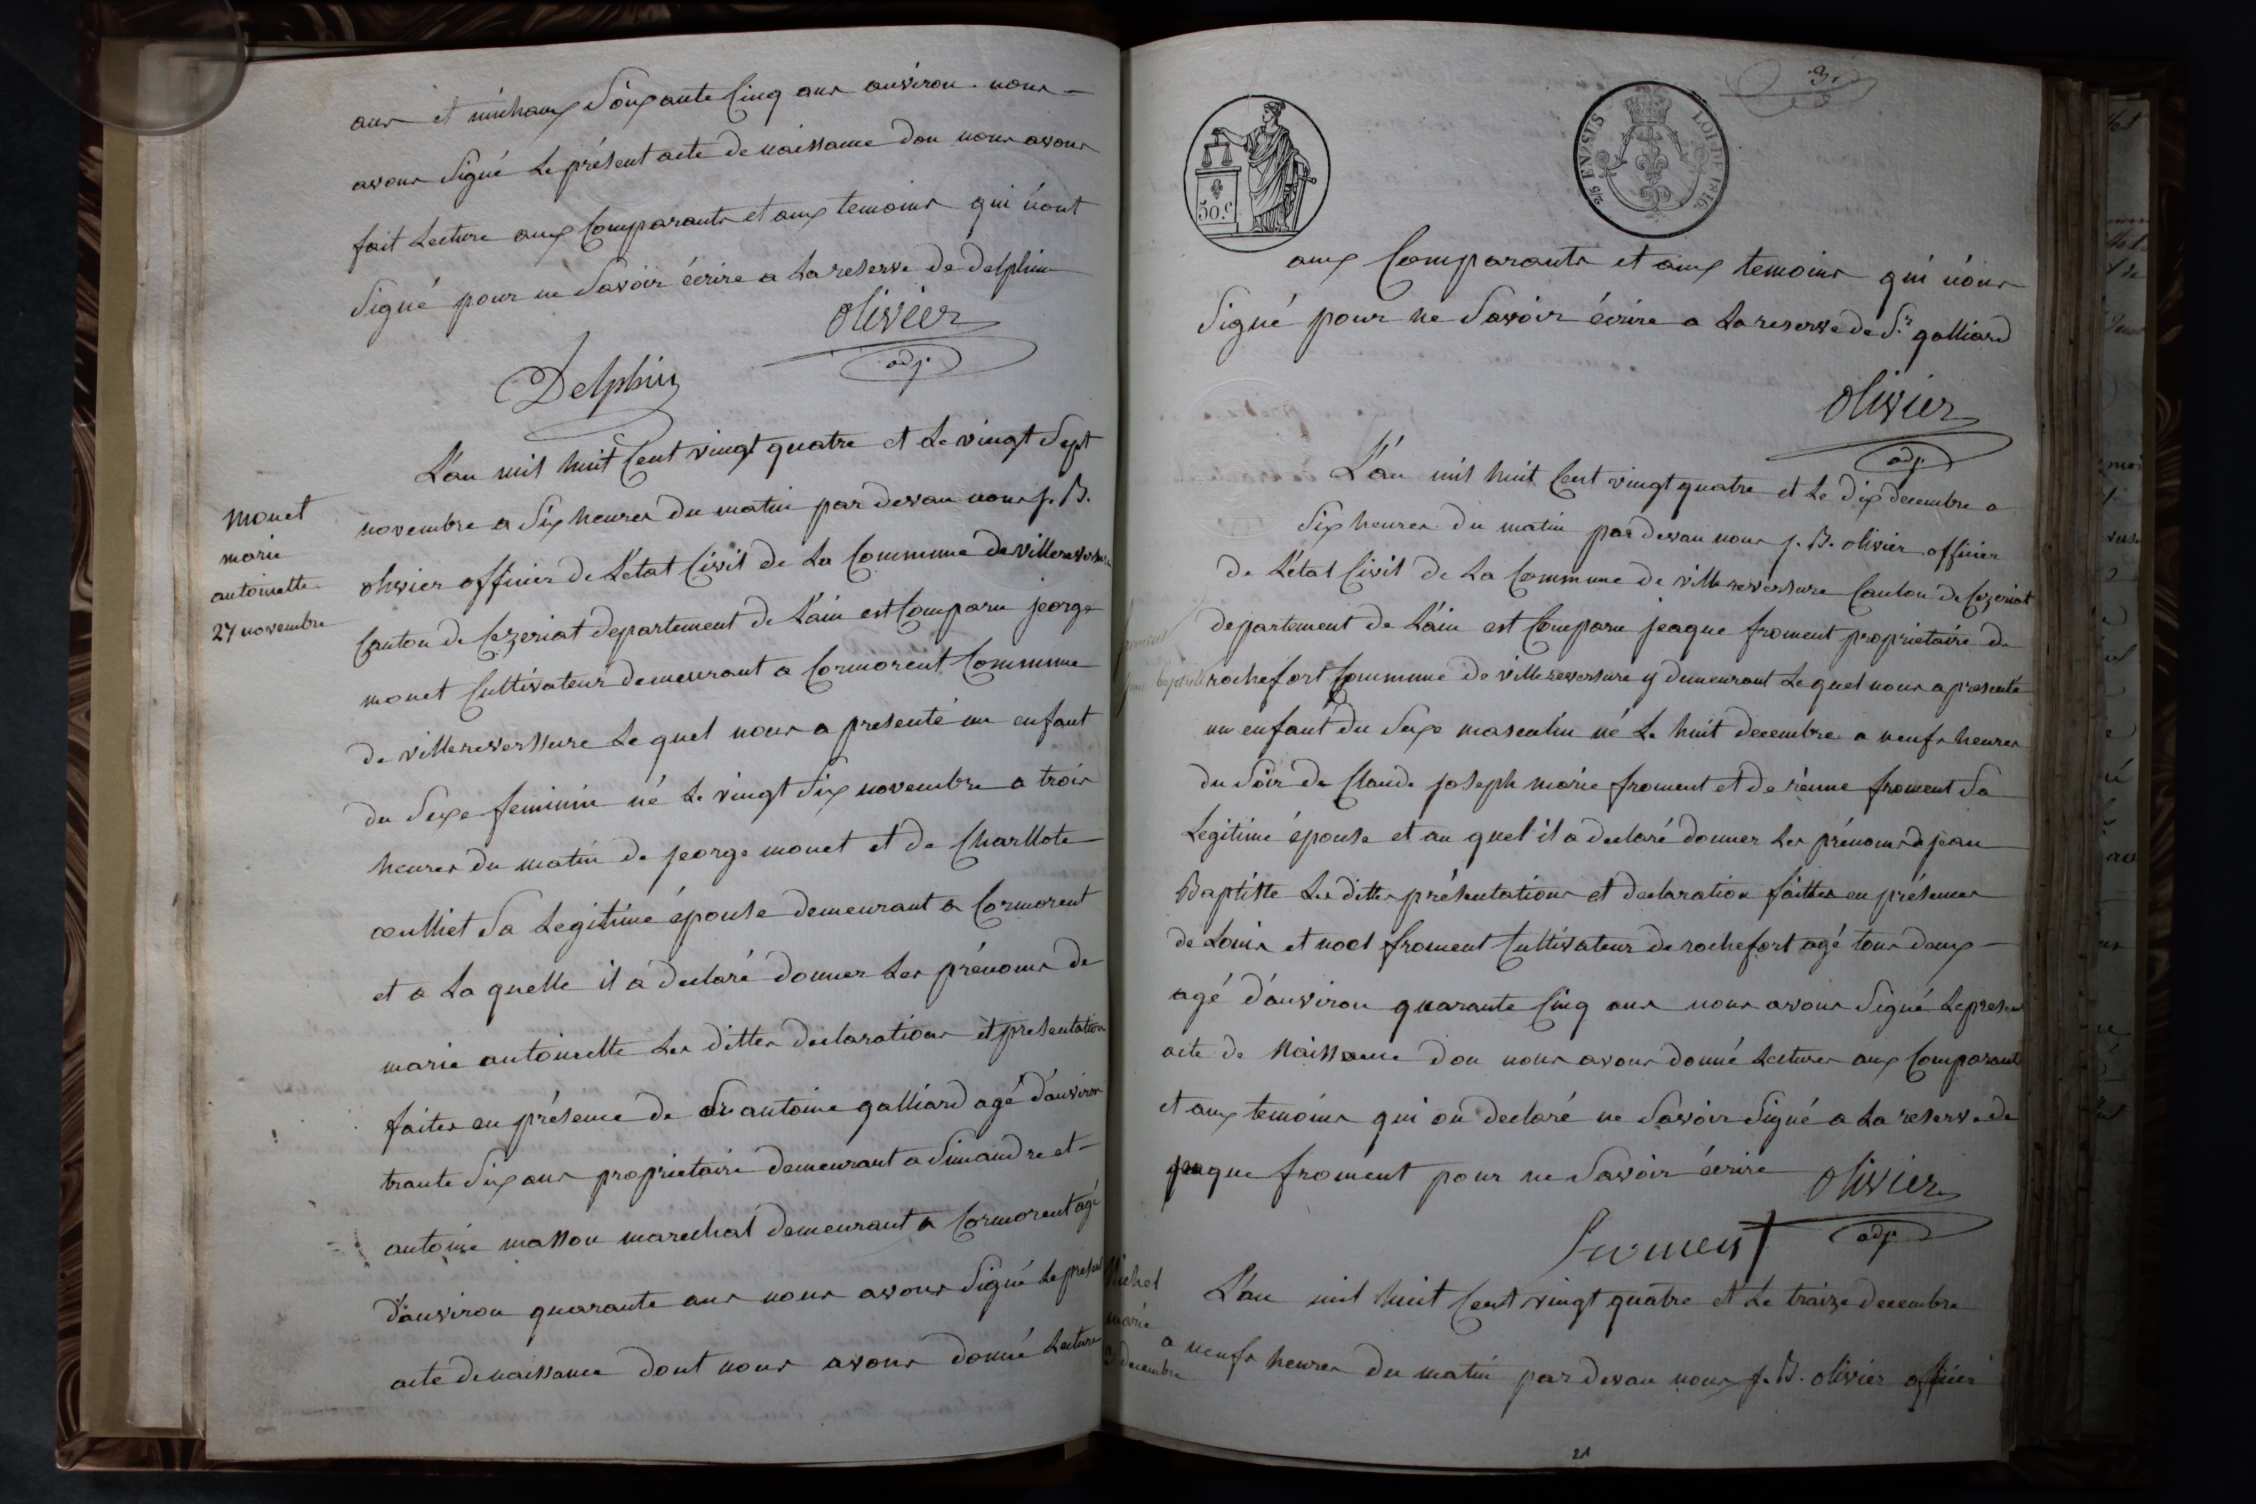 ans et michaux Soixante Cinq ans anviron. nous
avons Signé Le présent acte de naissance don nous avons
fait Lecture aux Comparants et aux temoins qui n'ont
Signé pour ne Savoir écrire a La reserve de delphin
olivier
adj.
Delphin
L'an mil huit Cent vingt quatre et Le vingt Sept
novembre a Six heures du matin par devan nous j. B.
olivier officier de L'etat Civil de La Commune de villereversure
Canton de Cezeriat departement de L'ain est Comparu jeorge
monet Cultivateur demeurant a Cormorent Commune
de villereverssure Le quel nous a presenté un enfant
du Sexe feminin né Le vingt Six novembre a trois
heures du matin de jeorge monet et de Charllote
œulliet Sa Legitime épouse demeurant a Cormorent
et a La quelle il a declaré donner Les prénoms de
marie antoinette Les dittes declarations et presentation
faites en présence de antoine galliard agé d'anviron
trante Six ans proprietaire demeurant a Simandre et
antoine masson marechal demeurant a Cormorent agé
d'anviron quarante ans nous avons Signé Le presen
acte de naissance dont nous avons donné Lecture
monet
marie
antoinette
27 novembre
3.
50.c
2/5 EN SUS
LOI DE 1816
aux Comparants et aux temoins qui n'ons
Signé pour ne Savoir écrire a La reserve de Sr. galliard
olivier
adj.
L'an mil huit Cent vingt quatre et Le dix decembre a
Six heures du matin par devan nous j. B. olivier officier
de L'etat Civil de La Commune de villereversure Canton de Cezeriat
departement de L'ain est Comparu jeaque froment proprietaire de
rochefort Commune de villereversure y demeurant Le quel nous a presenté
un enfant du Sexe masculin né Le huit decembre a neufs heures
du Soir de Claude joseph marie froment et de reinne froment Sa
Legitime épouse et au quel il a declaré donner Les prénoms de jean
Baptiste Les dittes présentations et declaration faittes en présences
de Louis et noel froment Cultivateur de rochefort agé tous deux
agé d'anviron quarante Cinq ans nous avons Signé Le presen
acte de Naissance don nous avons donné Lectures aux Comparants
et aux temoins qui on declaré ne Savoir Signé a La reserve de
jeaque froment pour ne Savoir écrire
olivier
adj.
froment
L'an mil huit Cent vingt quatre et Le traize decembre
a neufs heures du matin par devan nous j. B. olivier officier
froment
jean baptiste
Michel
marie
decembre
21